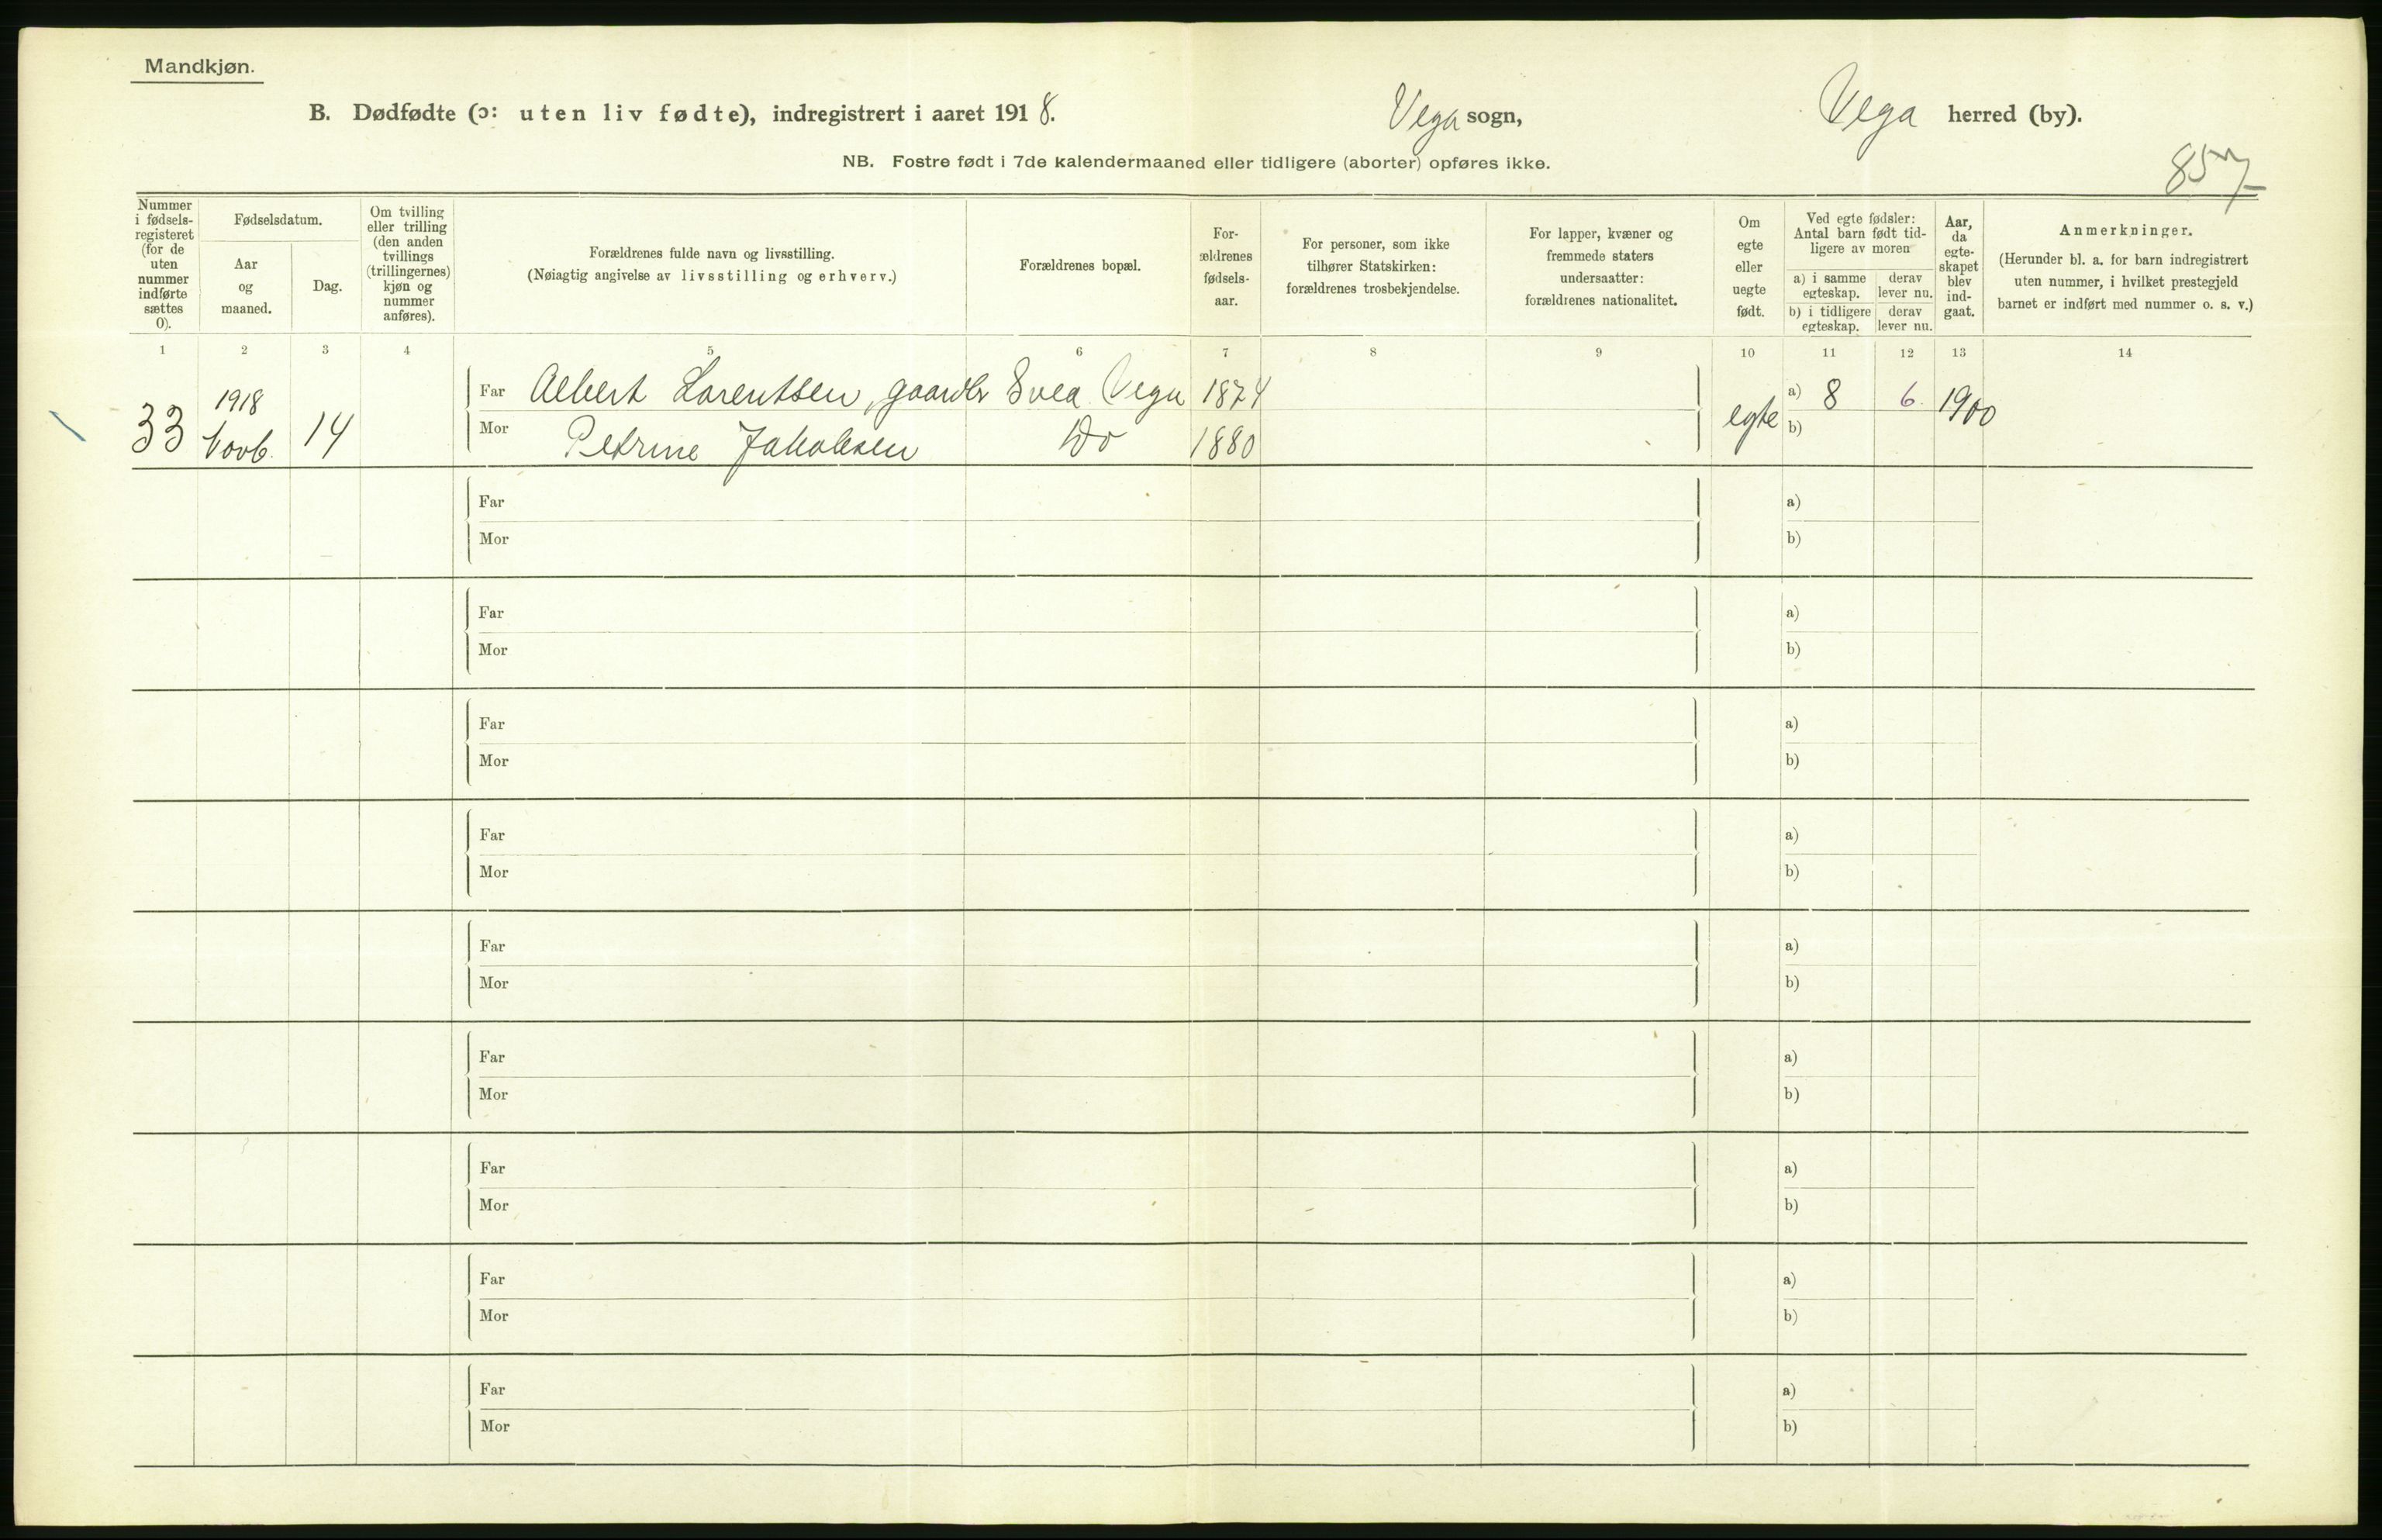 Mandkjøn.
B. Dødfødte (ɔ: uten liv fødte), indregistrert i aaret 1918. Vega sogn, Vega herred (by).
NB. Fostre født i 7de kalendermaaned eller tidligere (aborter) opføres ikke.
857
Nummer i fødsels-registeret (for de uten nummer indførte sættes 0).
Fødselsdatum.
Aar og maaned.
Dag.
Om tvilling eller trilling (den anden tvillings (trillingernes) kjøn og nummer anføres).
Forældrenes fulde navn og livsstilling.
(Nøiagtig angivelse av livsstilling og erhverv.)
Forældrenes bopæl.
For-ældrenes fødsels-aar.
For personer, som ikke tilhører Statskirken: forældrenes trosbekjendelse.
For lapper, kvæner og fremmede staters undersaatter: forældrenes nationalitet.
Om egte eller uegte født.
Ved egte fødsler: Antal barn født tid-ligere av moren
a) i samme egteskap.
derav lever nu.
b) i tidligere egteskap.
derav lever nu.
Aar, da egte-skapet blev ind-gaat.
Anmerkninger.
(Herunder bl. a. for barn indregistrert uten nummer, i hvilket prestegjeld barnet er indført med nummer o. s. v.)
1 2 3 4 5 6 7 8 9 10 11 12 13 14
33 1918 Novb. 14
Far Albert Lorentsen, gaardbr Svea Vega 1874
Mor Petrine Jakobsen Do 1880
egte a) 8 6 1900
b)
Far a)
Mor b)
Far a)
Mor b)
Far a)
Mor b)
Far a)
Mor b)
Far a)
Mor b)
Far a)
Mor b)
Far a)
Mor b)
Far a)
Mor b)
Far a)
Mor b)